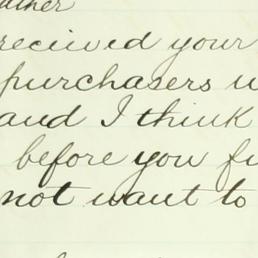 received your
purchasers
and I think
before you
not want to